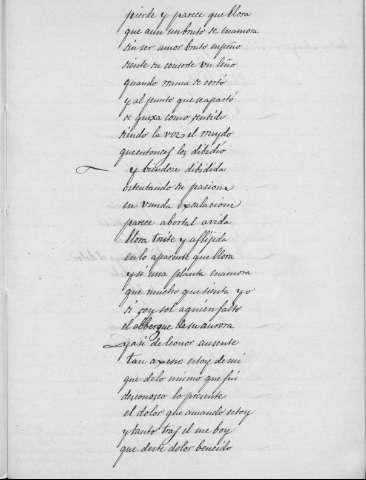 pierde y parece que llora
que aun un bruto se enamora
sin ser amor bruto empeño
siente su consorte un leño
quando nunca se cortó
y al punto que se apartó
se quexa como sentido
siendo la voz el ruydo
que entonces los dibidió
y biendose dibidida
ostentando su pasion
en vanda exalacion
parece abortal avida
llora triste y aflijida
en lo aparente que llora
y si una planta enamora
que mucho que sienta yo
si soy sol a quien faltó
el albergue de su aurora
y asi de leonor ausente
tan axeno estoy de mi
que de lo mismo que fui
desconosco lo presente
el dolor que amando estoy
y tanto tras el me boy
que deste dolor bencido